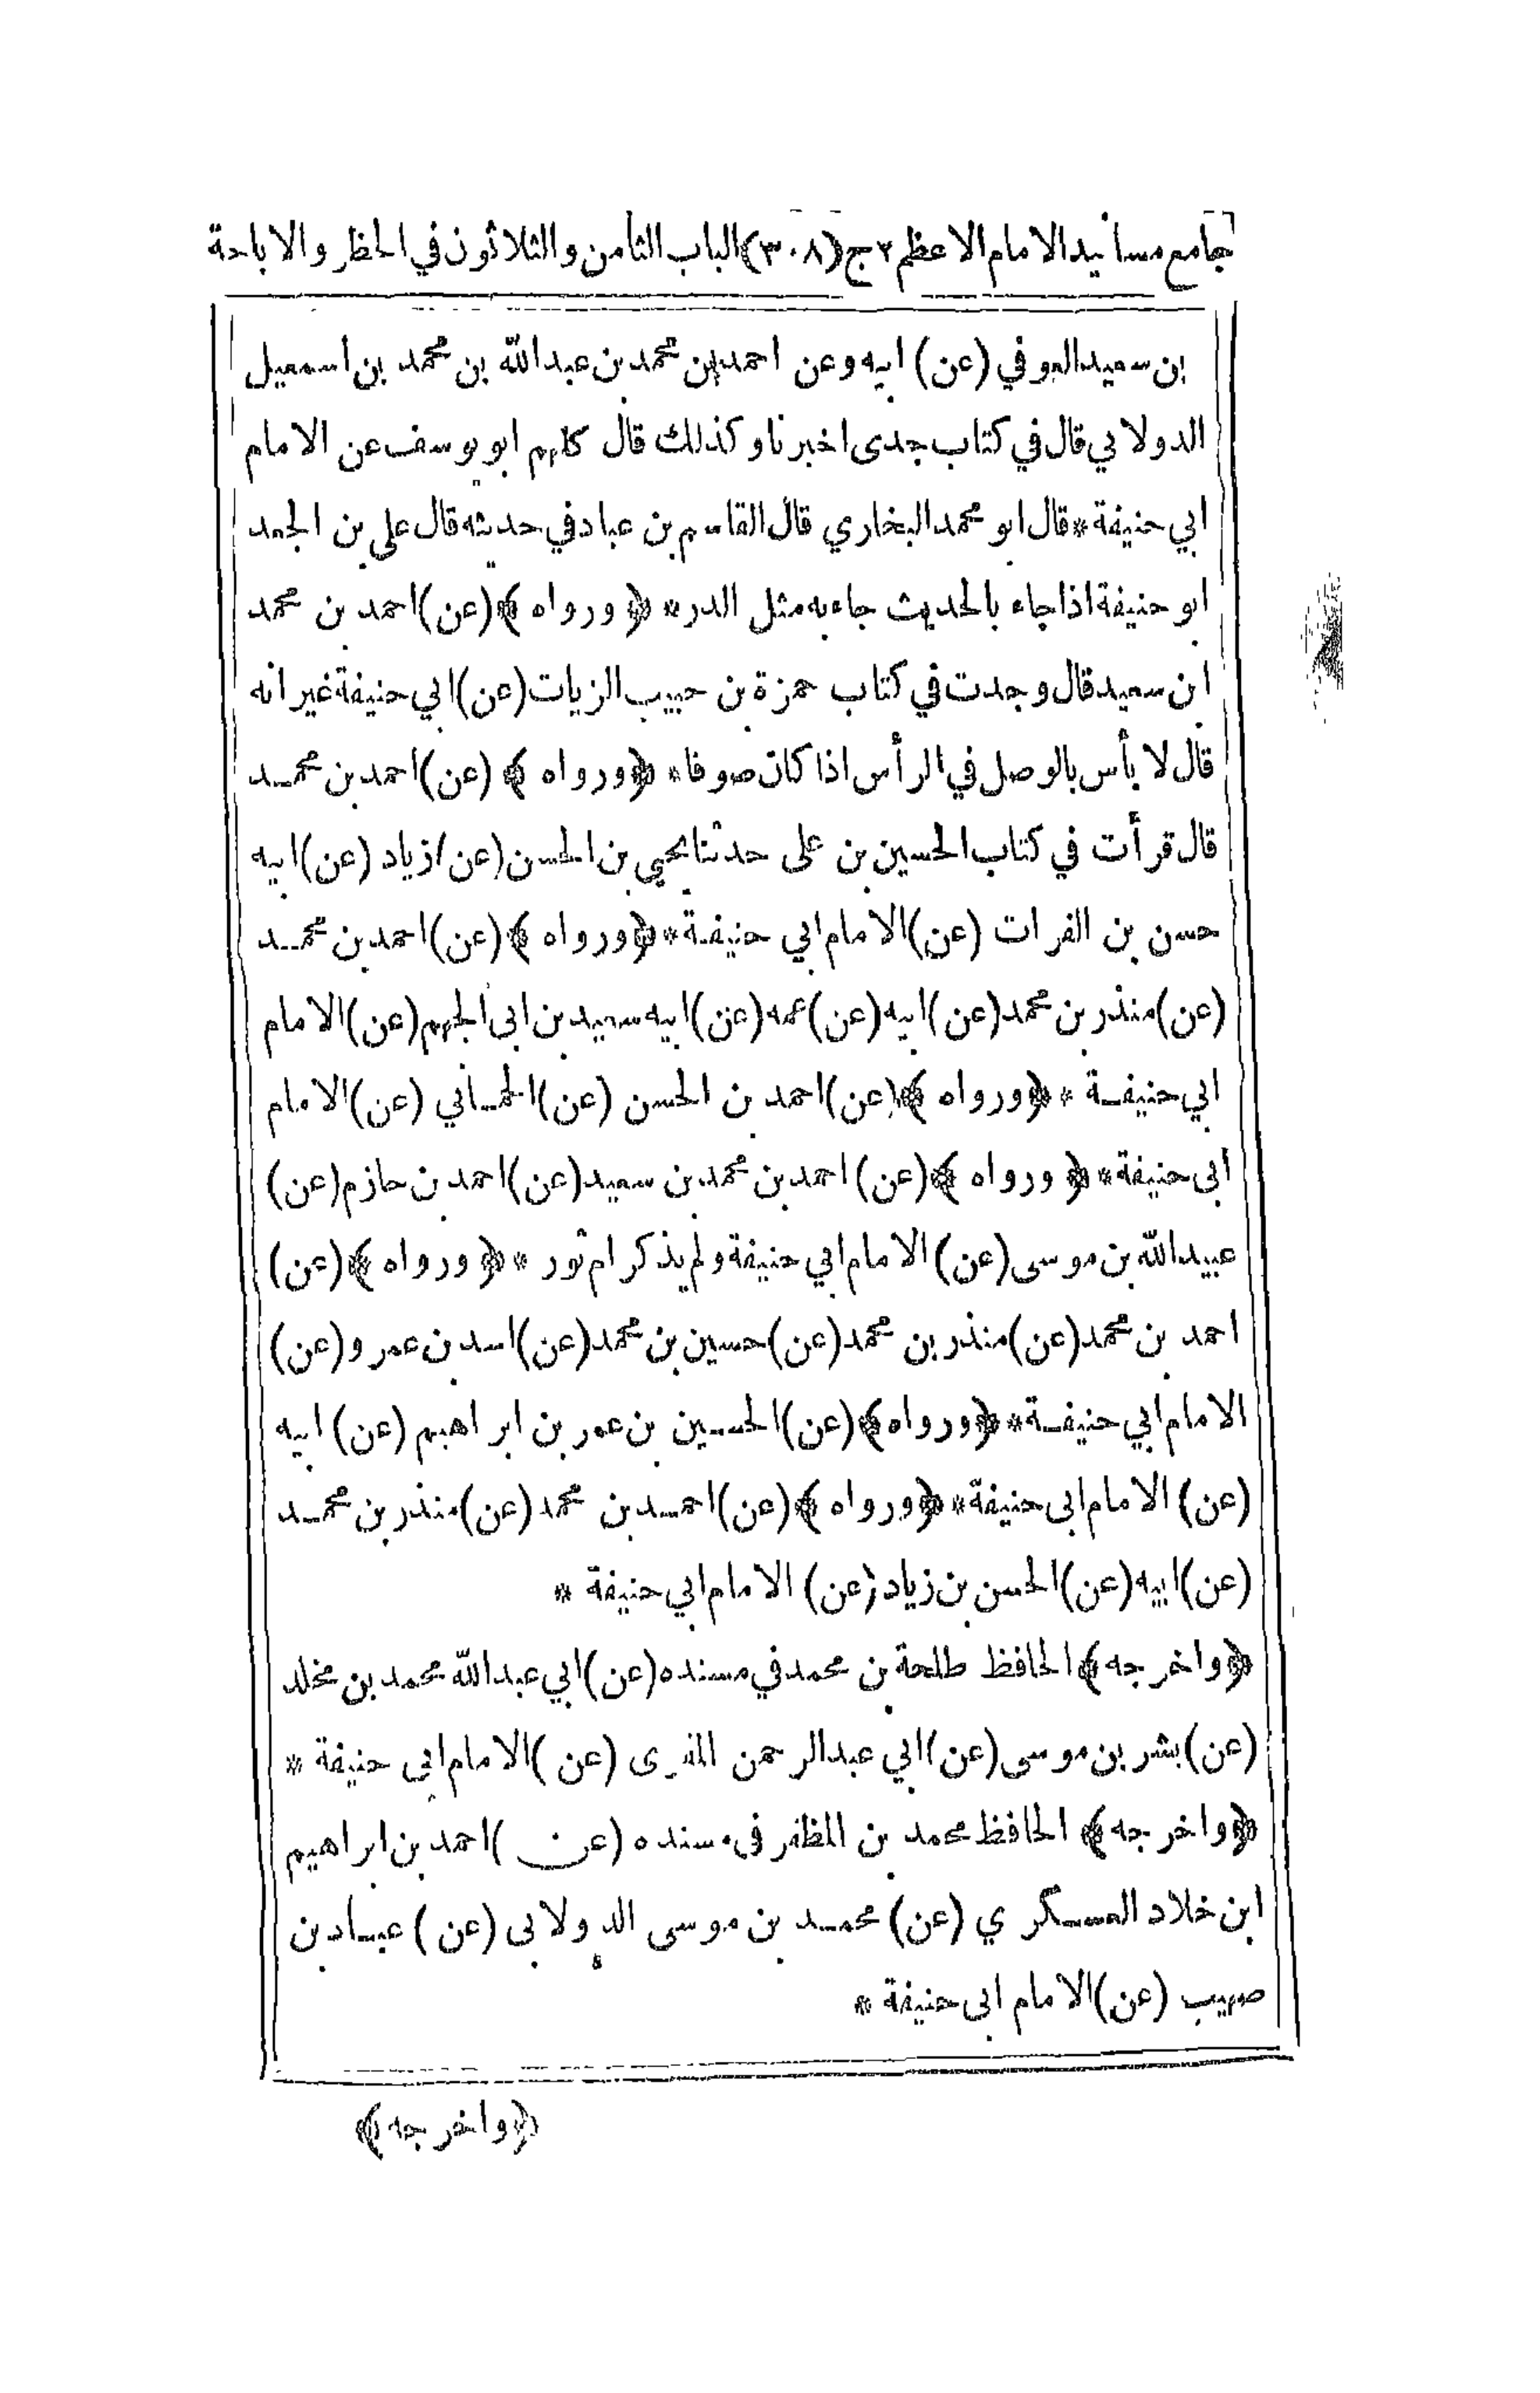 جامع مسانيد الامام الاعظم ٢ ج (٣٠٨) الباب الثامن والثلاثون في الحظر والاباحة
بن سعيد العوفي (عن) ابيه وعن احمد بن محمد بن عبدالله بن محمد بن اسمعيل
الدولابي قال في كتاب جدى اخبرنا وكذلك قال كلهم ابو يوسف عن الامام
ابي حنيفة * قال ابو محمد البخاري قال القاسم بن عباد في حديثه قال على بن الجعد
ابو حنيفة اذا جاء بالحديث جاء به مثل الدر * ﴿ ورواه ﴾ (عن) احمد بن محمد
ابن سعيد قال وجدت في كتاب حمزة بن حبيب الزيات (عن) ابي حنيفة غير انه
قال لا بأس بالوصل في الرأس اذا كان صوفا * ﴿ ورواه ﴾ (عن) احمد بن محمد
قال قرأت في كتاب الحسين بن على حدثنا يحيى بن الحسن (عن) زياد (عن) ابيه
حسن بن الفرات (عن) الامام ابي حنيفة * ﴿ ورواه ﴾ (عن) احمد بن محمد
(عن) منذر بن محمد (عن) ابيه (عن) عمه (عن) ابيه سعيد بن ابى الجهم (عن) الامام
ابي حنيفة * ﴿ ورواه ﴾ (عن) احمد بن الحسن (عن) الحماني (عن) الامام
ابى حنيفة * ﴿ ورواه ﴾ (عن) احمد بن محمد بن سعيد (عن) احمد بن حازم (عن)
عبيدالله بن موسى (عن) الامام ابي حنيفة ولم يذكر ام ثور * ﴿ ورواه ﴾ (عن)
احمد بن محمد (عن) منذر بن محمد (عن) حسين بن محمد (عن) اسد بن عمرو (عن)
الامام ابي حنيفة * ﴿ ورواه ﴾ (عن) الحسين بن عمر بن ابراهيم (عن) ابيه
(عن) الامام ابى حنيفة * ﴿ ورواه ﴾ (عن) احمد بن محمد (عن) منذر بن محمد
(عن) ابيه (عن) الحسن بن زياد (عن) الامام ابي حنيفة *
﴿ واخرجه ﴾ الحافظ طلحة بن محمد في مسنده (عن) ابي عبدالله محمد بن مخلد
(عن) بشر بن موسى (عن) ابي عبدالرحمن المقرى (عن) الامام ابى حنيفة *
﴿ واخرجه ﴾ الحافظ محمد بن المظفر فى مسنده (عن) احمد بن ابراهيم
ابن خلاد العسكري (عن) محمد بن موسى الدولابى (عن) عباد بن
صهيب (عن) الامام ابى حنيفة *
﴿ واخرجه ﴾